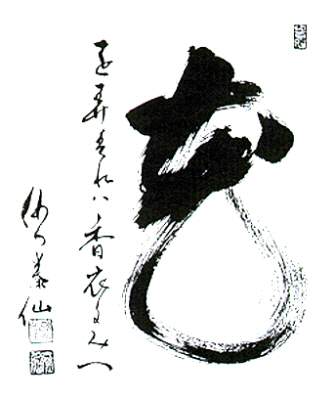 花
を弄すれハ香衣にみつ
泰仙